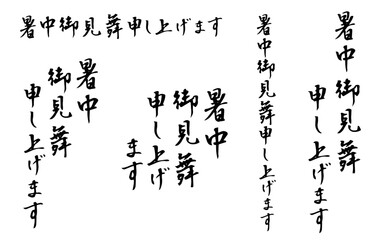 暑中御見舞申し上げます
暑中御見舞
申し上げます
暑中御見舞申し上げます
暑中
御見舞
申し上げ
ます
暑中
御見舞
申し上げます